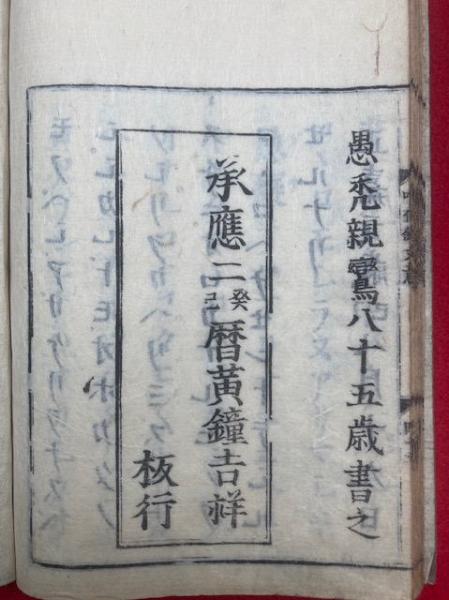 愚禿親鸞八十五歳書之
承應二癸巳暦黄鐘吉祥
板行